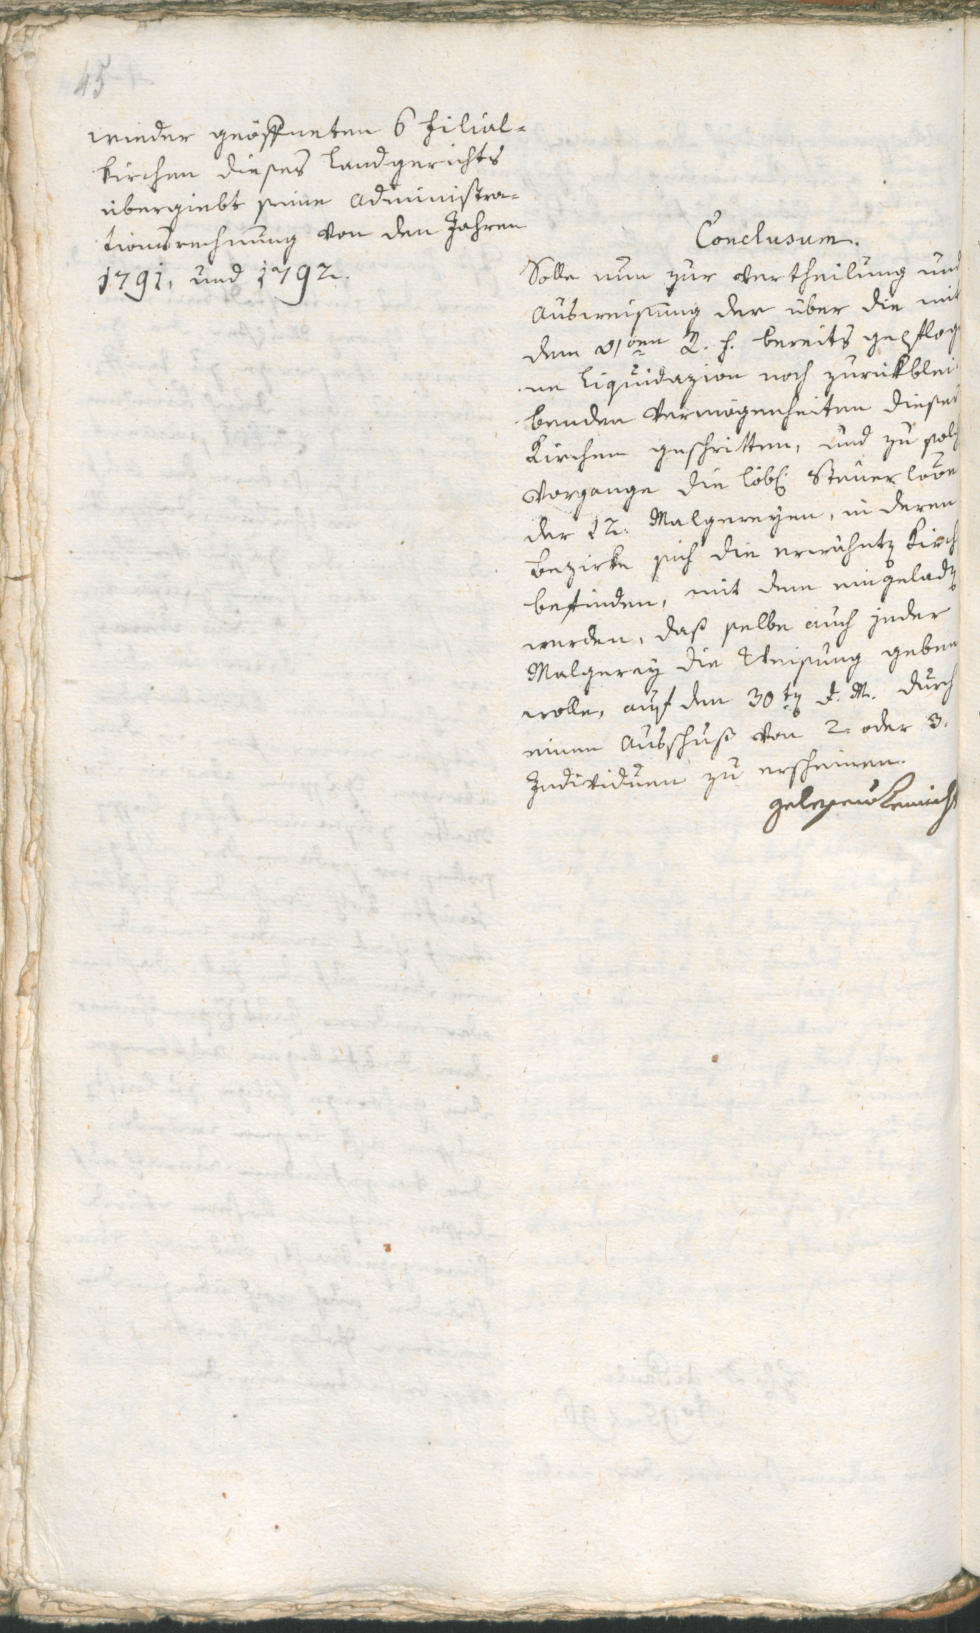 45
wieder geöffneten 6 Filial-
kirchen dieses Landgerichts
übergiebt seine Administra-
tionsrechnung von den Jahren
1791, und 1792.
Conclusum.
Solle nun zur Vertheilung und
Ausweisung der über die mit
dem bereits gepflog
ne Liquidazion noch zurükblei
benden Vermögenheiten dieser
Kirchen geschritten, und zu solch
Vorgange die löbl: Steuer
der 12. Malgereyen, in deren
Bezirke sich die erwähntn Kirch
befinden, mit dem eingeladn
werden, daß selbe auch jeder
Malgerey die Weisung geben
wolle, auf den 30tn d. M. durch
einen Ausschuß von 2. oder 3.
Individuen zu erscheinen.